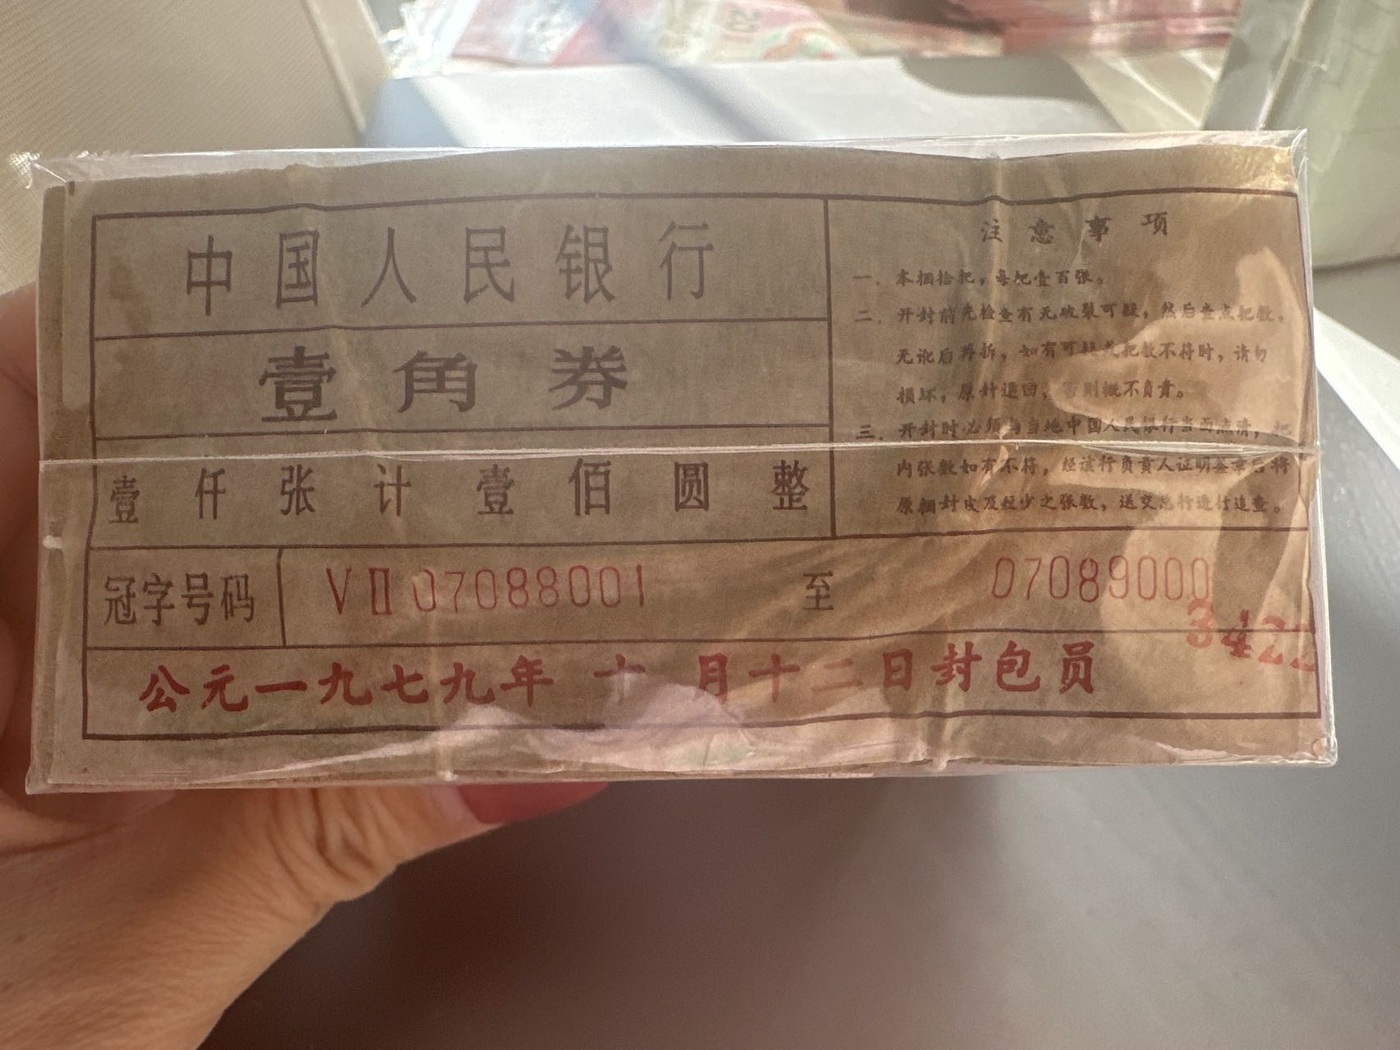 中国人民银行
壹角券
壹仟张计壹佰圆整
注意事项
一、本捆拾把，每把壹百张。
二、开封前先检查有无破裂可疑，然后查点把数，
无讹后再拆，如有可疑或把数不符时，请勿
损坏，原封退回，否则概不负责。
三、开封时必须与当地中国人民银行当面点清，把
内张数如有不符，经该行负责人证明签章后将
原捆封皮及短少之张数，送交总行进行追查。
冠字号码
VⅡ07088001 至 07089000
公元一九七九年十月十二日封包员 3422